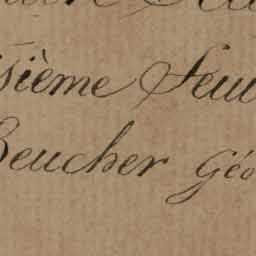 sième feui
Beucher Géo